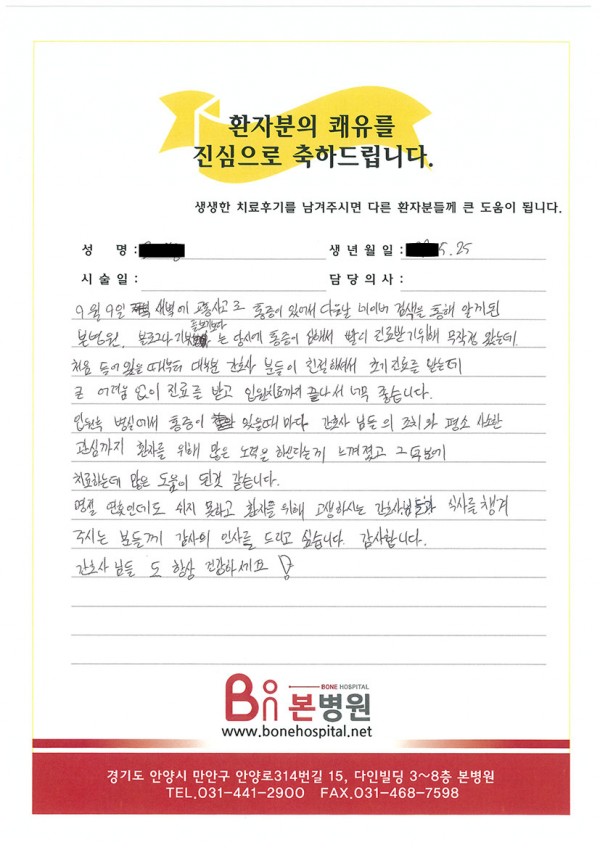 환자분의 쾌유를
진심으로 축하드립니다.
생생한 치료후기를 남겨주시면 다른 환자분들께 큰 도움이 됩니다.
성 명 : 생년월일 : 5.25
시술일 : 담당의사 :
9월 9일 새벽에 교통사고로 통증이 있어서 다음날 네이버 검색을 통해 알게된
본병원. 는 당시에 통증이 심해서 빨리 진료받기위해 무작정 왔는데.
처음 들어 왔을 때부터 대부분 간호사 분들이 친절해서 초기진료를 받는데
큰 어려움 없이 진료를 받고 입원치료까지 끝나서 너무 좋습니다.
입원후 병실에서 통증이 있을때 마다 간호사 님들의 조치와 평소 사소한
관심까지 환자를 위해 많은 노력을 하신다는게 느껴졌고 그
치료하는데 많은 도움이 된것 같습니다.
명절 연휴인데도 쉬지 못하고 환자를 위해 고생하시는 간호사님들과 식사를 챙겨
주시는 분들께 감사의 인사를 드리고 싶습니다. 감사합니다.
간호사님들 도 항상 건강하세요
BONE HOSPITAL
본병원
www.bonehospital.net
경기도 안양시 만안구 안양로314번길 15, 다인빌딩 3~8층 본병원
TEL.031-441-2900 FAX.031-468-7598